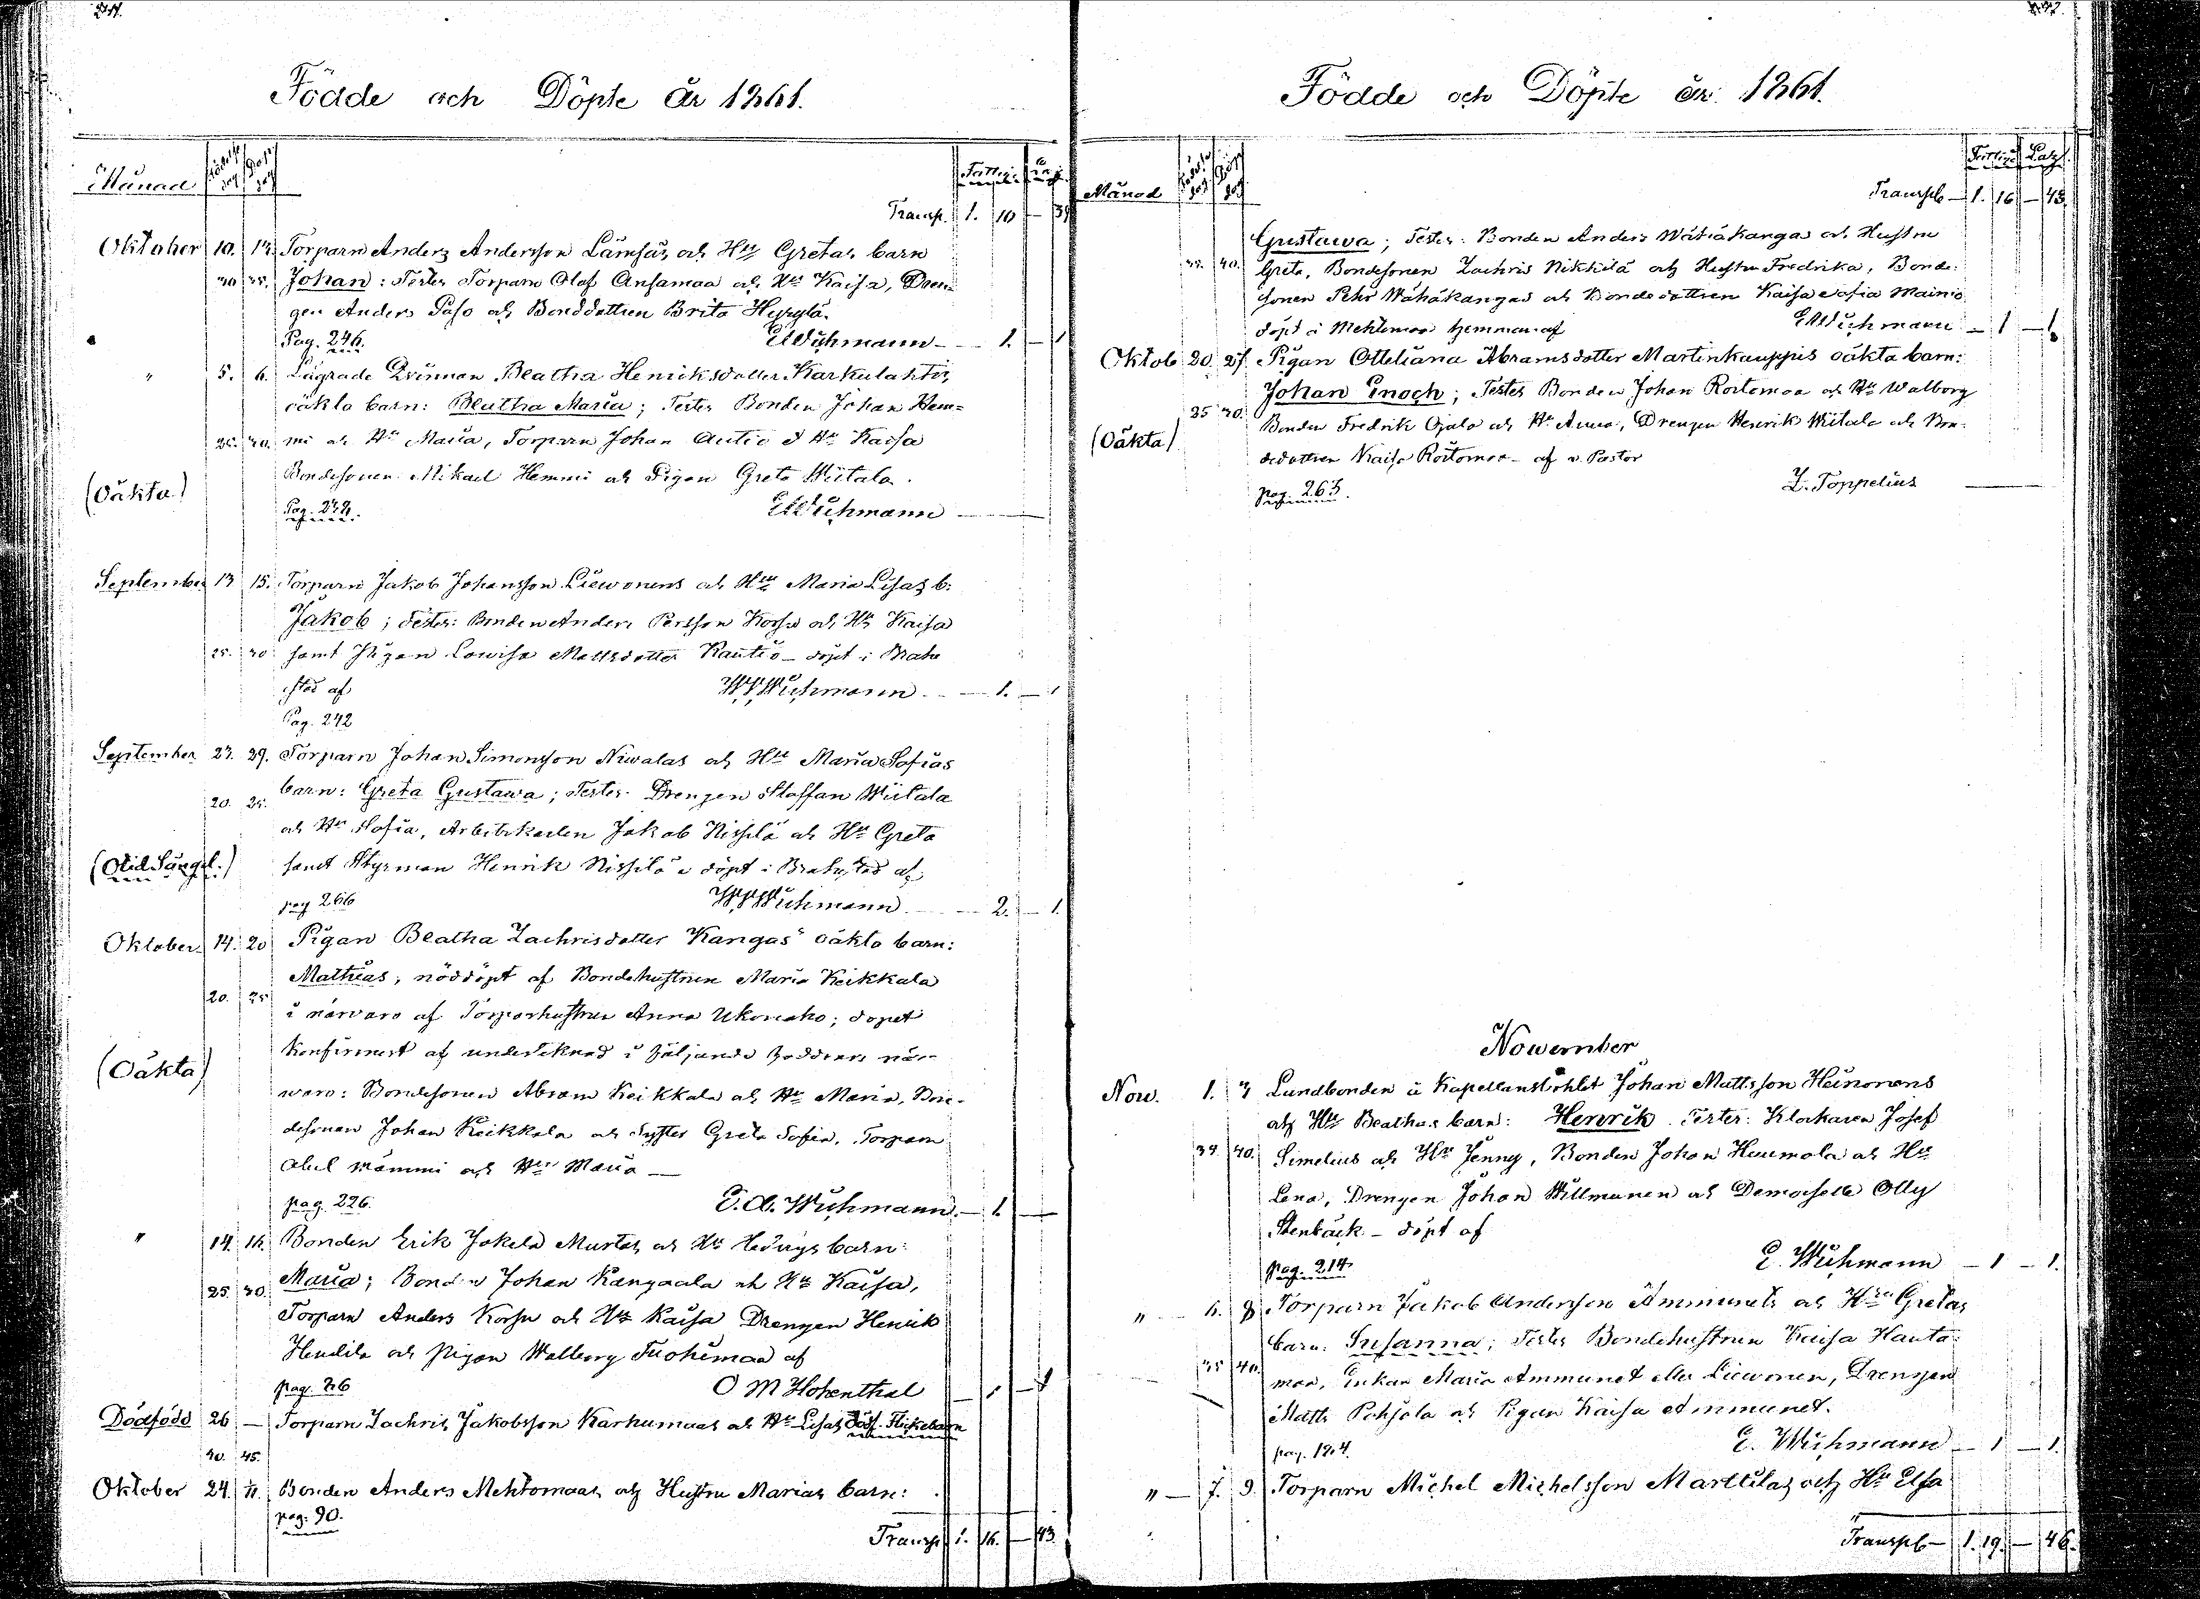 Födde och Döpte år 1861.
Månad
Transp. 1. 10 —
Oktober 10. 13. Torparn Anders Andersson Lämsäs och Hu Gretas barn
30 35. Johan: Tester Torparn Olof Ansamaa och Hu Kaisa, Dren-
gen Anders Paso och Bonddottren Brita Hyrylä.
Pag. 246. EWichmann — 1. — 1
" 5. 6. Lägrade Qvinnan Beatha Henricksdotter Karkulahtis
oäkta barn: Beatha Maria; Tester Bonden Johan Hem-
25. 30. mi och Hu Maria, Torparn Johan Autio o Hu Kaisa
Bondesonen Mikael Hemmi och Pigan Greta Wiitala.
(Oäkta)
Pag. EWichmann —
September 13 15. Torparn Jakob Johansson Liewonens och Hu Maria Lisas b.
Jakob; Tester: Bonden Anders Persson Korsu och Hu Kaisa
25. 30 samt Pigan Lowisa Mattsdotter Rautio — döpt i Brahe
stad af WWichmann — 1. —
Pag. 242
September 23. 29. Torparn Johan Simonsson Niwalas och Hu Maria Sofias
20. 25. barn: Greta Gustawa; Tester Drengen Staffan Wiitala
och Hu Sofia, Arbetskarlen Jakob Nissilä och Hu Greta
(Otid. Sängel.) samt Styrman Henrik Nissilä döpt i Brahestad af
pag 266 WWichmann — 2. — 1.
Oktober 14. 20 Pigan Beatha Zachrisdotter Kangas oäkta barn:
Mathias, nöddöpt af Bondehustrun Maria Keikkala
20. 25 i närvaro af Torparhustrun Anna Ukonaho; dopet
Konfirmert af underteknad i följande när-
(Oäkta)
waro: Bondesonen Abram Keikkala och Hu Maria, Bon-
desonen Johan Keikkala och Syster Greta Sofia, Torparn
Abel Mämmi och Hu Maria —
pag. 226. E. A. Wichmann — 1. —
" 14. 16. Bonden Erik Jokela Murtos och Hu Hedvigs barn:
25. 30. Maria; Bonden Johan Kangaala och Hu Kaisa,
Torparn Anders Korsu och Hu Kaisa Drengen Henrik
Hendilä och Pigan Walborg Tuohimaa af
pag. 26 O M Hohenthal — 1 — 1
Dödfödd 26 — Torparn Zachris Jakobsson Karhumaas och Hu Lisas döf. Flickebarn
40. 45.
Oktober 24. Bonden Anders Mehtomaas och Hustru Marias barn:
pag. 90.
Transp 1. 16. — 43.
Födde och Döpte år 1861.
Månad
Transpt — 1. 16 — 43.
Gustawa; Tester: Bonden Anders Wähäkangas och Hustru
35. 40. Greta, Bondesonen Zachris Nikkilä och Hustru Fredrika, Bonde-
sonen Pehr Wähäkangas och Bondedottren Kaisa Sofia Mainio
döpt å Mehtomaa hemman af EWichmann — 1 — 1.
Oktob 20. 27. Pigan Otteliana Abramsdotter Martinkauppis oäkta barn:
Johan Enoch; Tester Bonden Johan Roitomaa och Hu Walborg
25 30. Bonden Fredrik Ojala och Hu Anna, Drengen Henrik Wiitala och Bon-
(Oäkta)
dedottren Kaisa Roitomaa — af v. Pastor
pag. 263. Z. Toppelius —
Nowember
Now. 1. 3 Landbonden å Kapellansbohlet Johan Mattsson Heinonens
och Hu Beathas barn: Henrik. Tester: Klockaren Josef
34. 40. Simelius och Hu Jenny, Bonden Johan Heumola och Hu
Lena, Drengen Johan Willmanen och Demoiselle Olly
Stenbäck — döpt af
pag. 214 E. Wichmann — 1 — 1.
" 6. 8 Torparn Jakob Andersson Ammunets och Hu Gretas
barn: Susanna; Tester Bondehustrun Kaisa Hauta-
35 40. maa, Enkan Maria Ammunet eller Liewonen, Drengen
Matts Pohjola och Pigan Kaisa Ammunet.
pag. 184. E. Wichmann — 1 — 1.
" — 7. 9. Torparn Michel Michelsson Marttilas och Hu Elsa
Transpt — 1. 19. — 46.